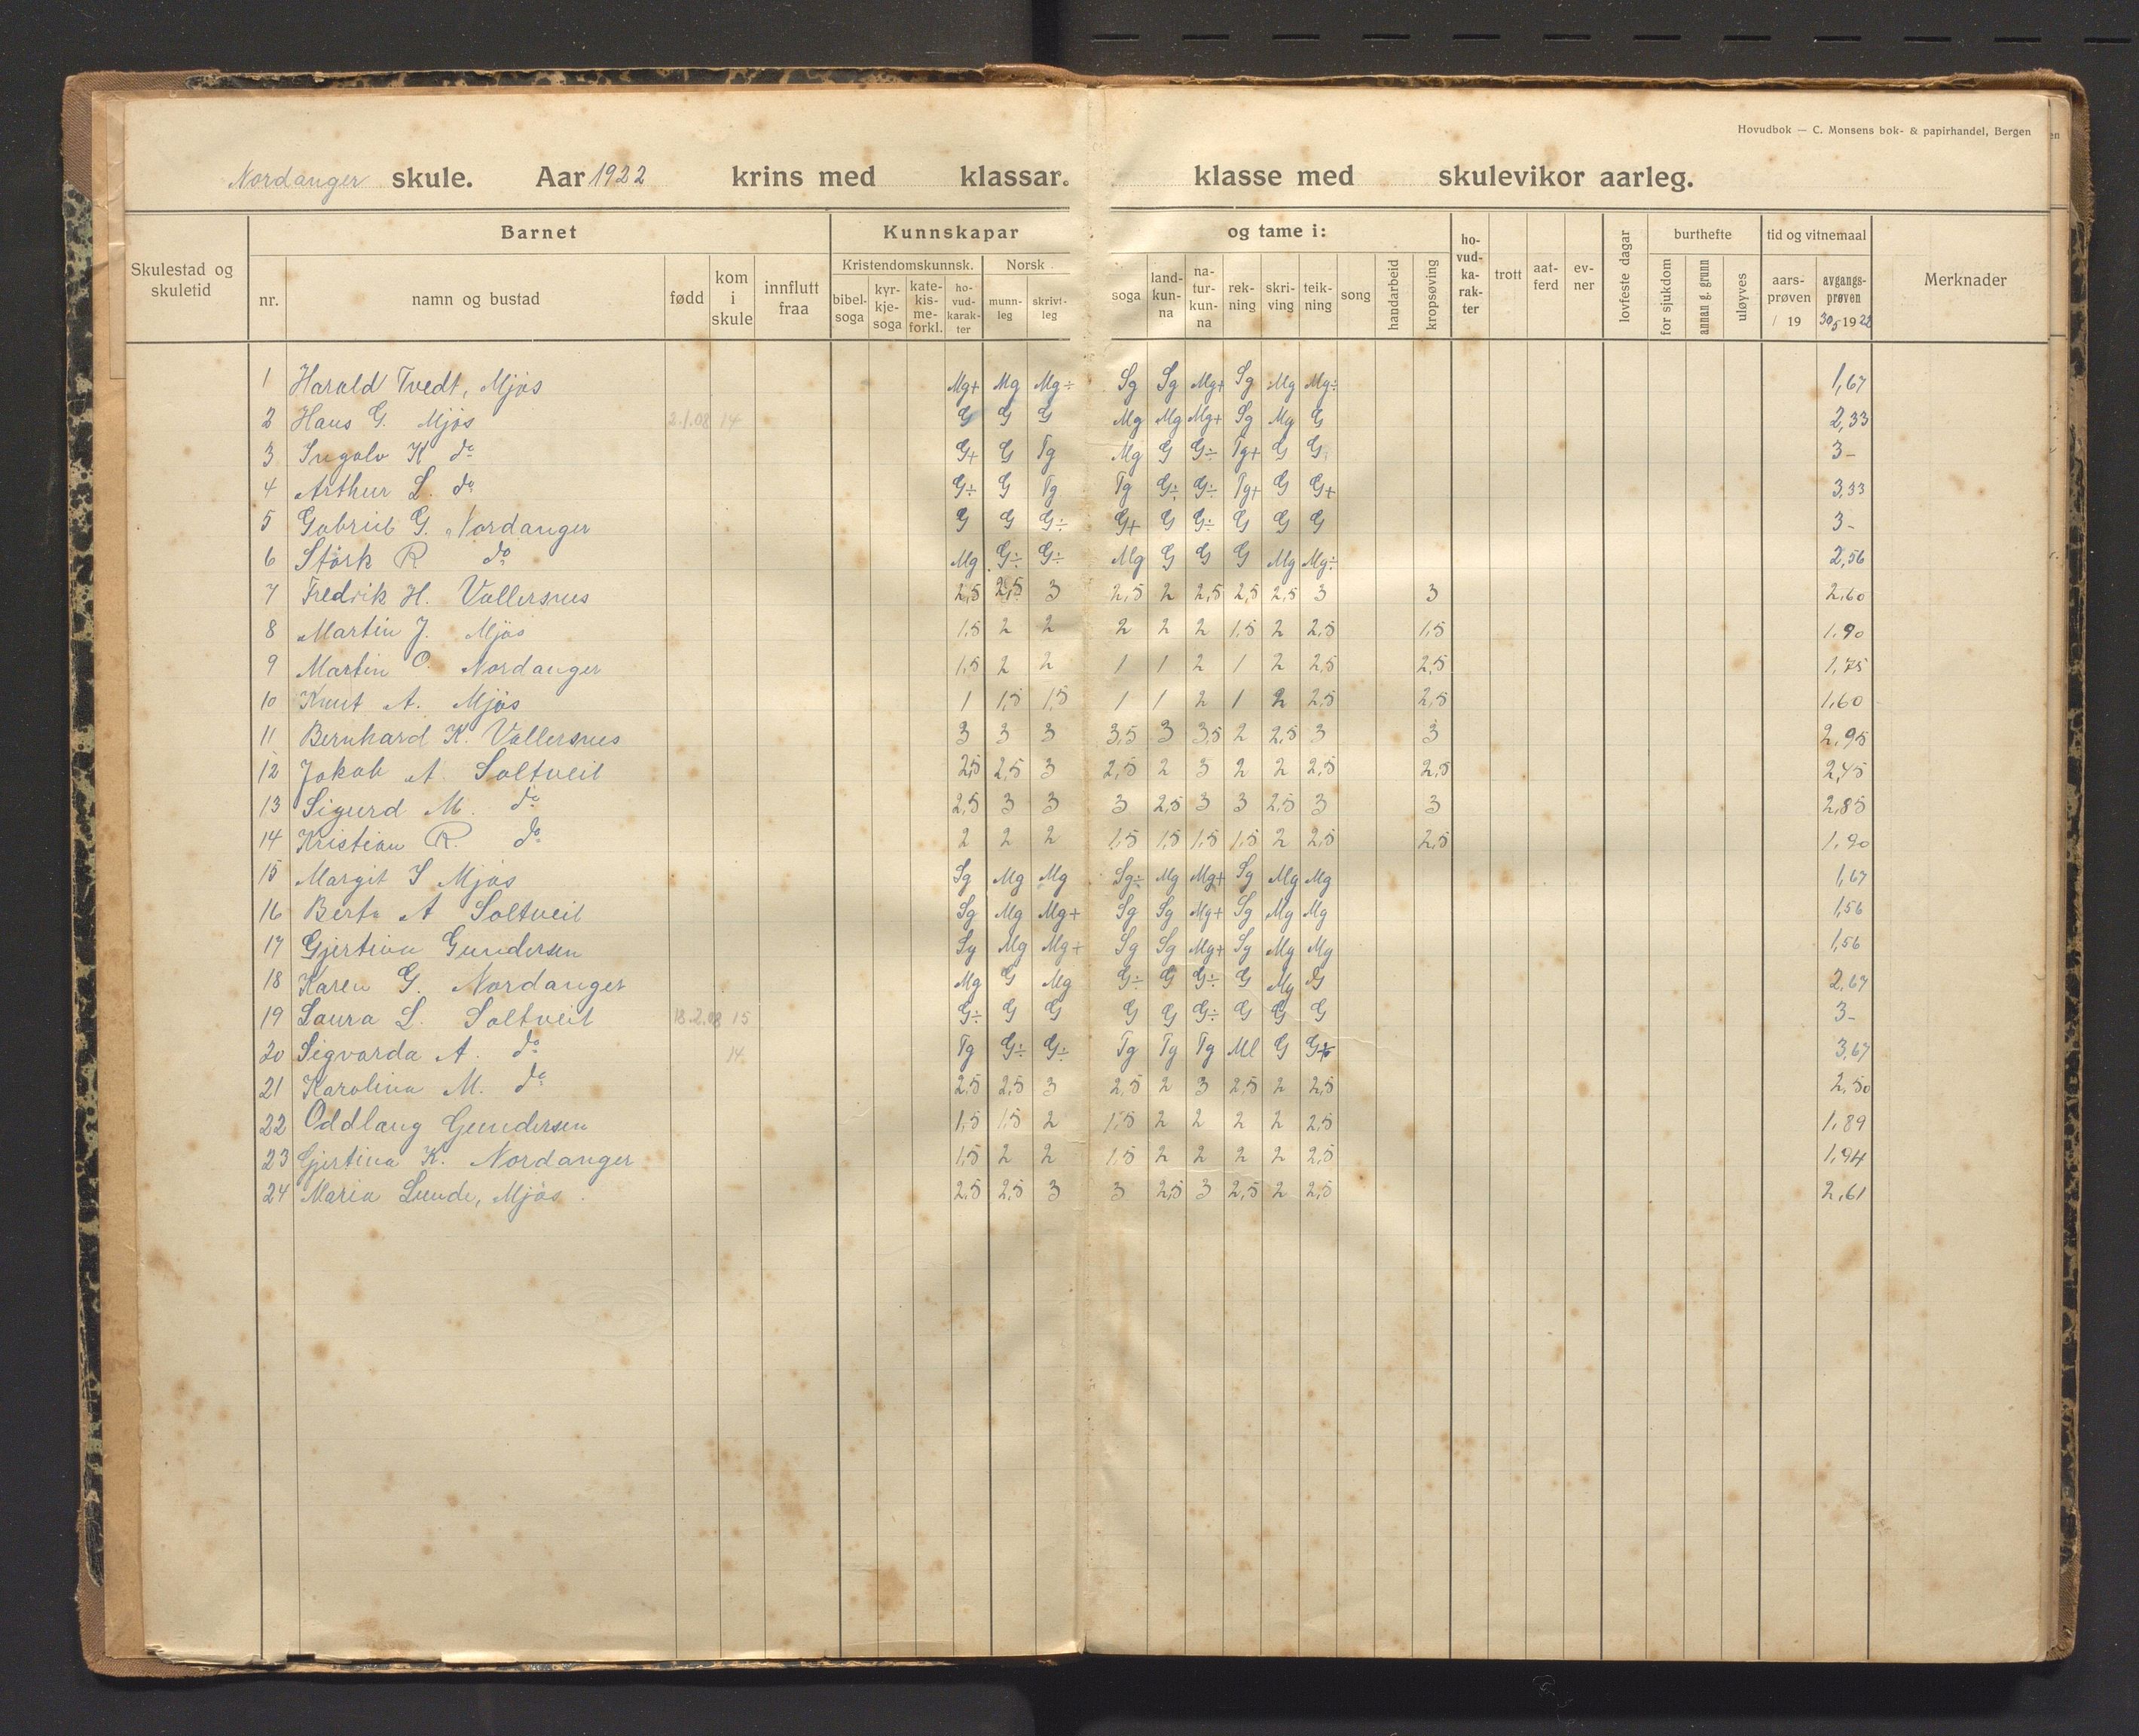 Hovudbok — C. Monsens bok- & papirhandel, Bergen
Nordanger skule. Aar 1922 krins med klassar. klasse med skulevikor aarleg.
Skulestad og skuletid
Barnet
nr. namn og bustad fødd kom i skule innflutt fraa
Kunnskapar og tame i:
Kristendomskunnsk. Norsk
bibel-soga kyr-kje-soga kate-kis-me-forkl. ho-vud-karak-ter munn-leg skrivt-leg
soga land-kun-na na-tur-kun-na rek-ning skri-ving teik-ning song handarbeid kropsøving
ho-vud-ka-rak-ter trott aat-ferd ev-ner lovfeste dagar
burthefte
for sjukdom annan g. grunn uløyves
tid og vitnemaal
aars-prøven / 19 avgangs-prøven 30/5 1922
Merknader
1 Harald Tvedt, Mjøs Mg+ Mg Mg÷ Sg Sg Mg+ Sg Mg Mg÷ 1,67
2 Hans G. Mjøs 2.1.08 14 G G G Mg Mg Mg+ Sg Mg G 2,33
3 Ingolv K do G+ G Tg Mg G G÷ Tg+ G G 3-
4 Arthur L. do G÷ G Tg Tg G÷ G÷ Tg+ G G+ 3,33
5 Gabriel G. Nordanger G G G÷ G+ G G÷ G G G 3-
6 Störk R do Mg G÷ G÷ Mg G G G Mg Mg÷ 2,56
7 Fredrik H. Vallersnes 2,5 2,5 3 2,5 2 2,5 2,5 2,5 3 3 2,60
8 Martin J. Mjøs 1,5 2 2 2 2 2 1,5 2 2,5 1,5 1,90
9 Martin O. Nordanger 1,5 2 2 1 1 2 1 2 2,5 2,5 1,75
10 Knut A. Mjøs 1 1,5 1,5 1 1 2 1 2 2,5 2,5 1,60
11 Bernhard K. Vallersnes 3 3 3 3,5 3 3,5 2 2,5 3 3 2,95
12 Jakob A. Soltveit 2,5 2,5 3 2,5 2 3 2 2 2,5 2,5 2,45
13 Sigurd M. do 2,5 3 3 3 2,5 3 3 2,5 3 3 2,85
14 Kristian R. do 2 2 2 1,5 1,5 1,5 1,5 2 2,5 2,5 1,90
15 Margit S Mjøs Sg Mg Mg Sg÷ Mg Mg+ Sg Mg Mg 1,67
16 Berta A Soltveit Sg Mg Mg+ Sg Sg Mg+ Sg Mg Mg 1,56
17 Gjertina Gundersen Sg Mg Mg+ Sg Sg Mg+ Sg Mg Mg 1,56
18 Karen G. Nordanger Mg G Mg G÷ G G÷ G Mg G 2,67
19 Laura L. Soltveit 18.2.08 15 G÷ G G G G G÷ G G G 3-
20 Sigvarda A. do 14 Tg G÷ G÷ Tg Tg Tg Ml G G÷ 3,67
21 Karolina M. do 2,5 2,5 3 2,5 2 3 2,5 2 2,5 2,50
22 Oddlaug Gundersen 1,5 1,5 2 1,5 2 2 2 2 2,5 1,89
23 Gjertina K. Nordanger 1,5 2 2 1,5 2 2 2 2 2,5 1,94
24 Maria Lunde, Mjøs. 2,5 2,5 3 3 2,5 3 2,5 2 2,5 2,61